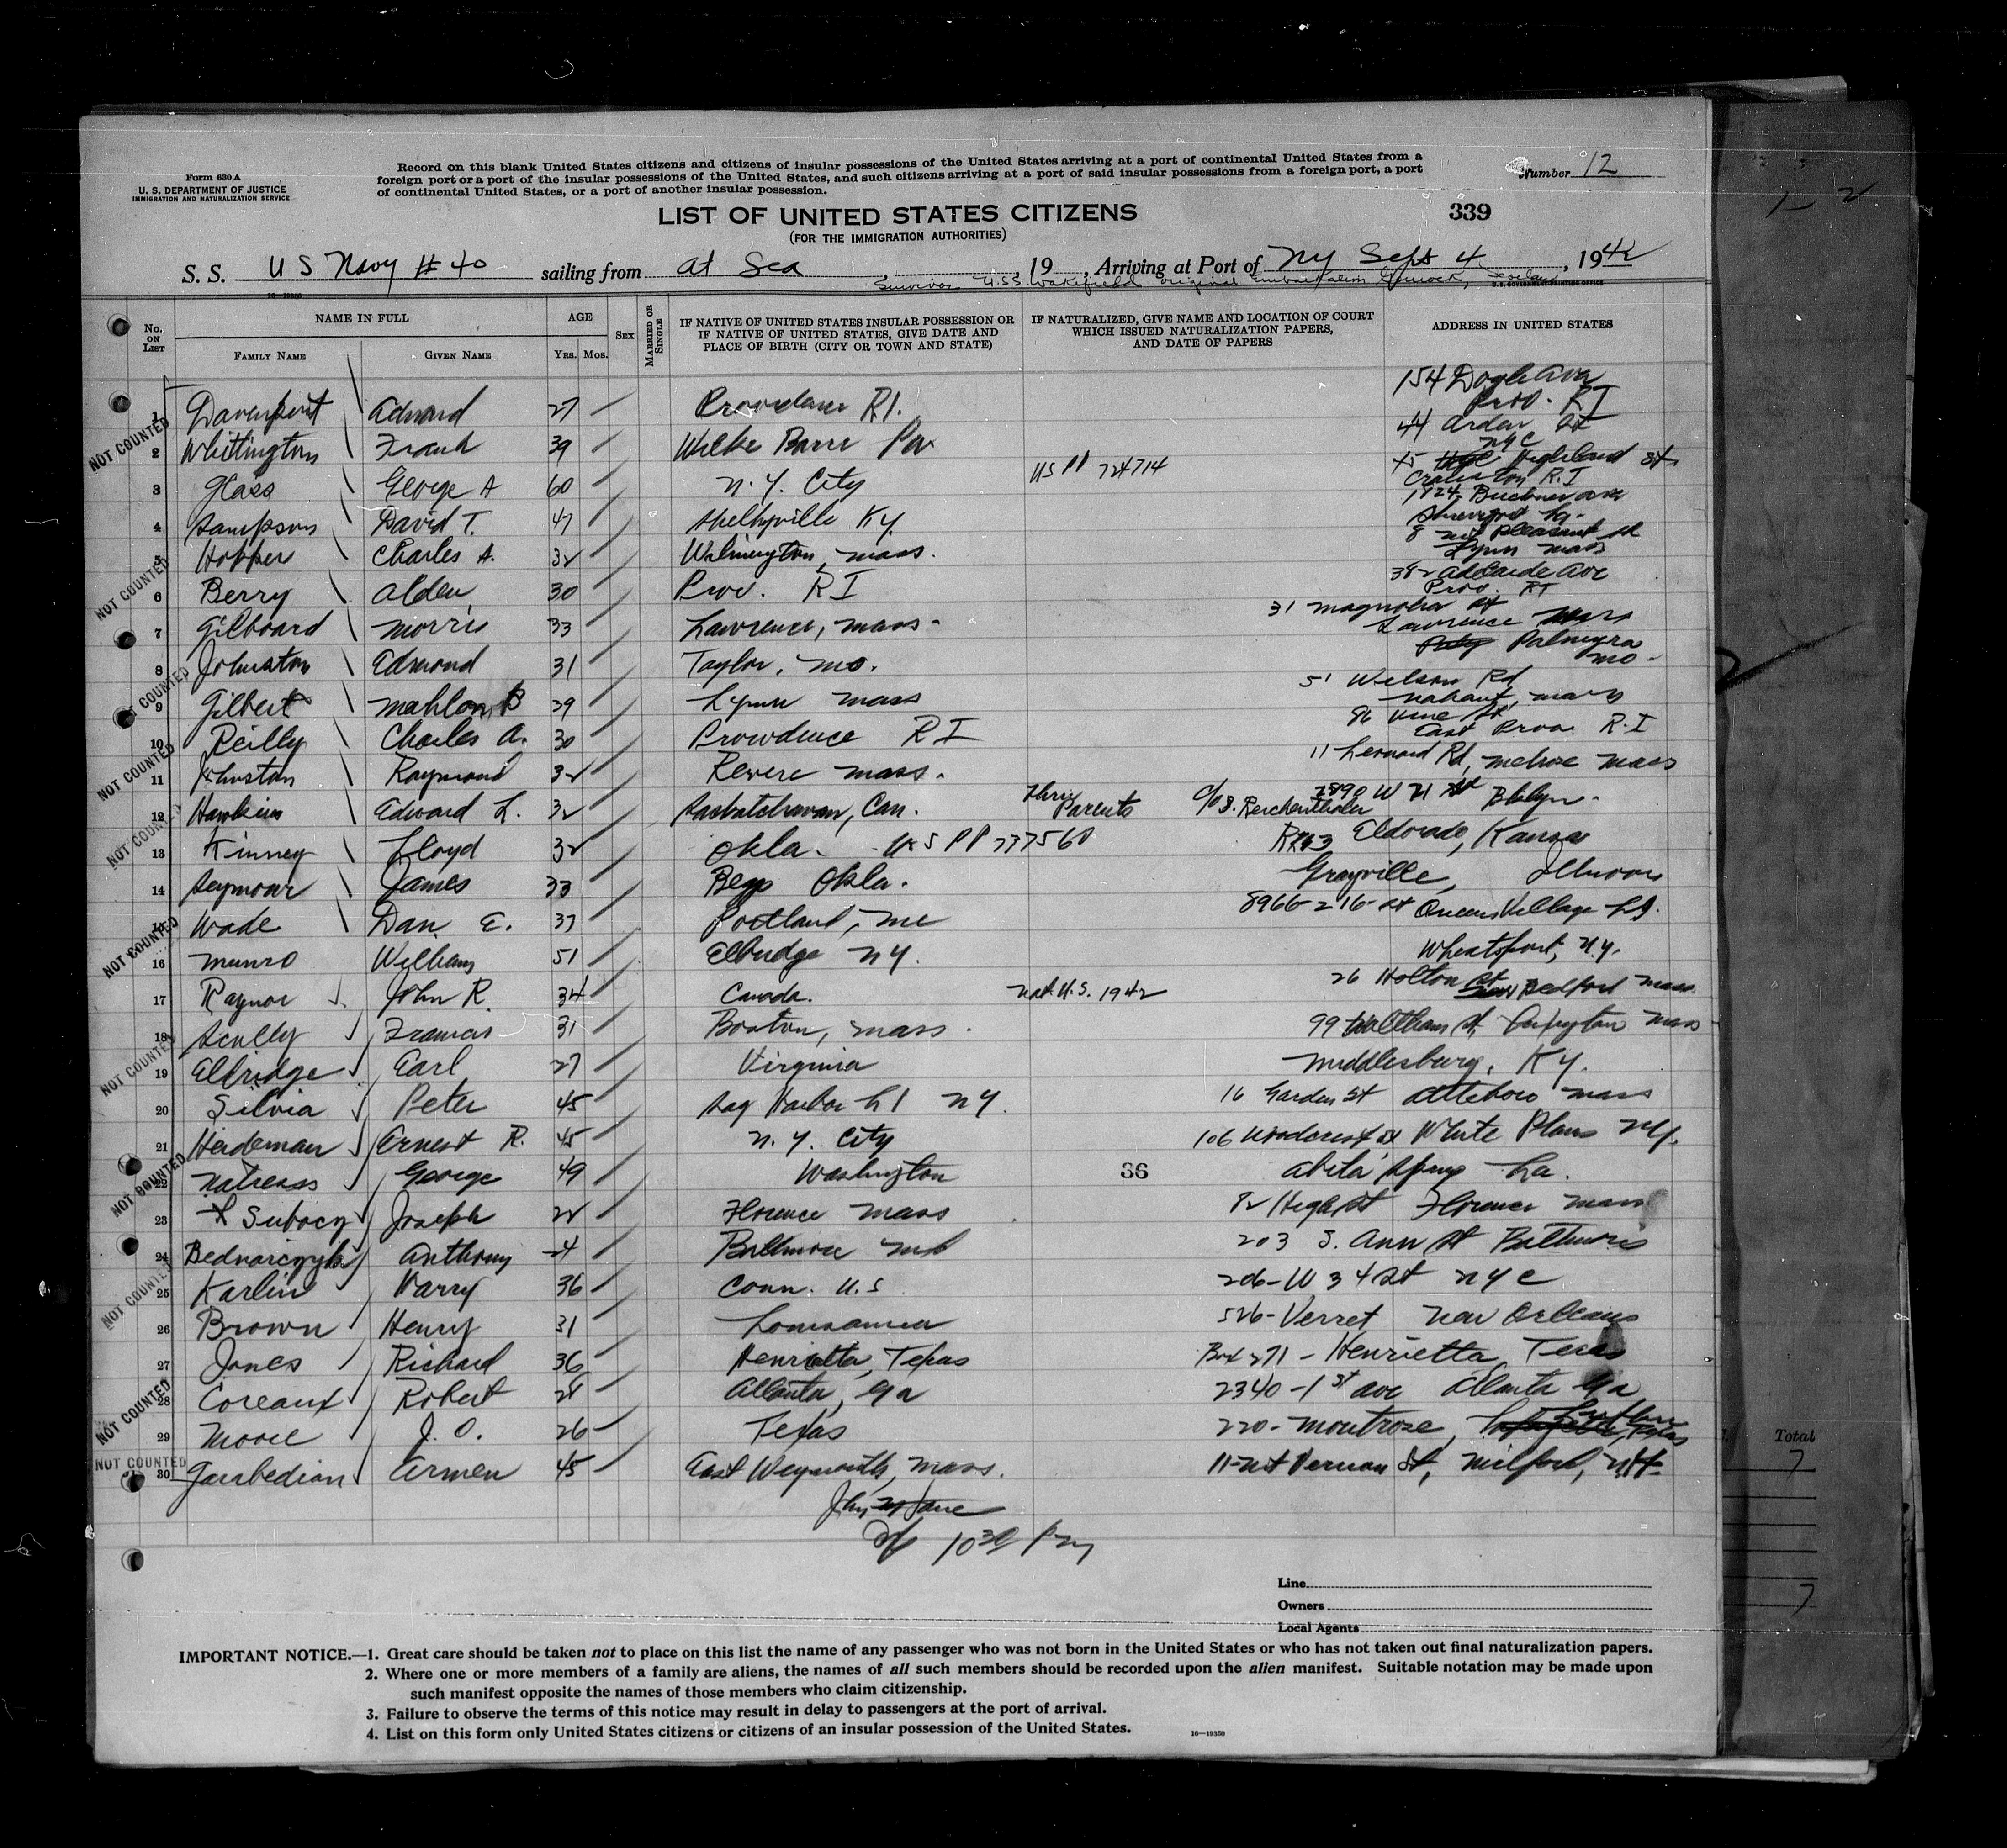 Form 630 A
U. S. DEPARTMENT OF JUSTICE
IMMIGRATION AND NATURALIZATION SERVICE
Record on this blank United States citizens and citizens of insular possessions of the United States arriving at a port of continental United States from a
foreign port or a port of the insular possessions of the United States, and such citizens arriving at a port of said insular possessions from a foreign port, a port
of continental United States, or a port of another insular possession.
Number 12
LIST OF UNITED STATES CITIZENS
339
(FOR THE IMMIGRATION AUTHORITIES)
S. S. U S Navy # 40 sailing from at Sea , 19 , Arriving at Port of NY Sept 4 , 1942
Survivor U.S.S. Wakefield original Embarkation
16—19350
U. S. GOVERNMENT PRINTING OFFICE
No. on List
NAME IN FULL
Family Name
Given Name
AGE
Yrs. Mos.
Sex
Married or Single
IF NATIVE OF UNITED STATES INSULAR POSSESSION OR IF NATIVE OF UNITED STATES, GIVE DATE AND PLACE OF BIRTH (CITY OR TOWN AND STATE)
IF NATURALIZED, GIVE NAME AND LOCATION OF COURT WHICH ISSUED NATURALIZATION PAPERS, AND DATE OF PAPERS
ADDRESS IN UNITED STATES
1 Davenport Edward 27 Providence RI. 154 Doyle Ave Prov. RI
2 Whittington Frank 39 Wilke Barre Pa 44 Arden St NYC
3 Glass George A 60 N.Y. City US PP 724714 45 Highland St Cranston R.I
4 Sampson David T. 47 Shelbyville Ky. 1824 Buckner ave Shreveport La.
5 Hopper Charles A. 32 Wilmington, Mass. 8 Mt Pleasant St Lynn Mass
6 Berry Alden 30 Prov. RI 382 Adelaide Ave Prov. RI
7 Gilboard Morris 33 Lawrence, Mass. 31 Magnolia St Lawrence Mass
8 Johnston Edmond 31 Taylor, Mo. Palmyra Mo.
9 Gilbert Mahlon B 39 Lynn Mass 51 Wilson Rd Nahant, Mass
10 Reilly Charles A. 30 Providence RI 86 Vine St East Prov R.I
11 Johnston Raymond 32 Revere Mass. 11 Leonard Rd, Melrose Mass
12 Hawkins Edward L. 32 Saskatchewan, Can. Thru Parents c/o S. Reichenthaler 2890 W 21 St Bklyn.
13 Kinney Lloyd 32 Okla. US PP 737560 RR#3 Eldorado, Kansas
14 Seymour James 33 Begs Okla. Grayville, Illinois
15 Wade Dan E. 37 Portland, Me 8966-216-St Queens Village L.I.
16 Munro William 51 Elbridge NY. N.Y.
17 Raynor John R. 34 Canada. Nat. U.S. 1942 26 Holton St Bedford Mass.
18 Scully Francis 31 Boston, Mass. 99 Waltham St, Lexington Mass
19 Elbridge Earl 27 Virginia Middlesburg, Ky.
20 Silvia Peter 45 Sag Harbor L I NY. 16 Garden St Attleboro Mass
21 Heideman Ernest R. 45 N.Y. City 106 Woodcrest St White Plains NY.
22 Natress George 49 Washington 36 Abita Springs La.
23 Subocy Joseph 22 Florence Mass 82 High St Florence Mass
24 Bednarczyk Anthony 24 Baltimore Md 203 S. Ann St Baltimore
25 Karlin Harry 36 Conn. U.S 206-W 34 St NYC
26 Brown Henry 31 Louisanna 526-Verret New Orleans
27 Jones Richard 36 Henrietta, Texas Box 271 - Henrietta Texas
28 Coreaux Robert 28 Atlanta, Ga 2340-1st ave Atlanta Ga
29 Moore J. O. 26 Texas 220-Montrose, Texas
30 Garabedian Armen 45 East Weymouth, Mass. 11-Mt Vernon St, Milford, NH.
10 30 PM
NOT COUNTED
NOT COUNTED
NOT COUNTED
NOT COUNTED
NOT COUNTED
NOT COUNTED
NOT COUNTED
NOT COUNTED
NOT COUNTED
NOT COUNTED
NOT COUNTED
Line
Owners
Local Agents
IMPORTANT NOTICE.—1. Great care should be taken not to place on this list the name of any passenger who was not born in the United States or who has not taken out final naturalization papers.
2. Where one or more members of a family are aliens, the names of all such members should be recorded upon the alien manifest. Suitable notation may be made upon
such manifest opposite the names of those members who claim citizenship.
3. Failure to observe the terms of this notice may result in delay to passengers at the port of arrival.
4. List on this form only United States citizens or citizens of an insular possession of the United States.
16—19350
Total
7
7